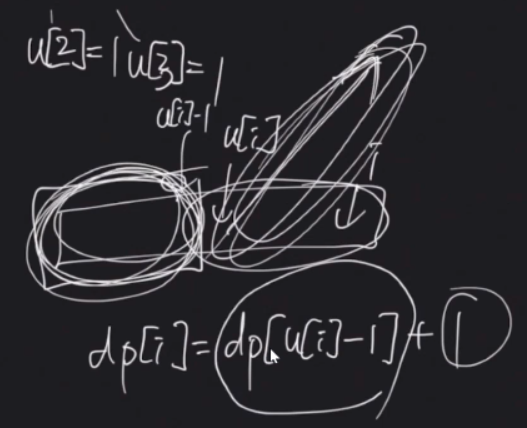 u[2]=1 u[3]=1
u[i]-1 u[i]
i
dp[i]=dp[u[i]-1]+1